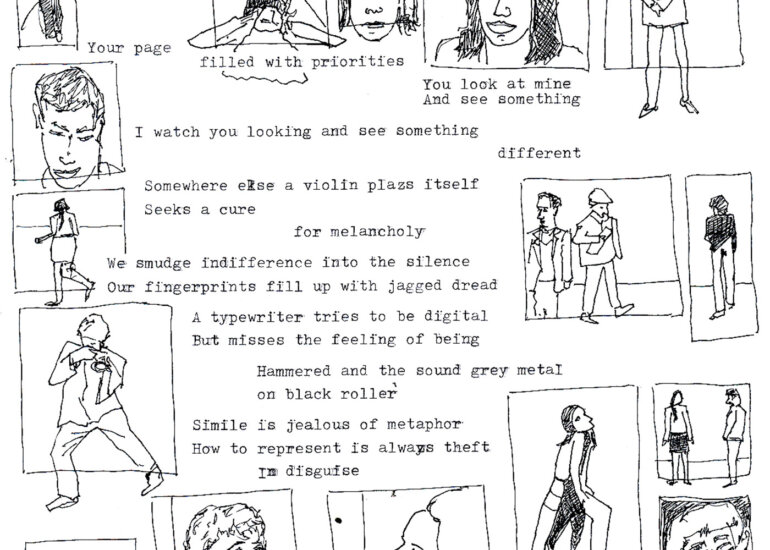 Your page
filled with priorities
You look at mine
And see something
I watch you looking and see something
different
Somewhere else a violin plazs itself
Seeks a cure
for melancholy
We smudge indifference into the silence
Our fingerprints fill up with jagged dread
A typewriter tries to be digital
But misses the feeling of being
Hammered and the sound grey metal
on black roller
Simile is jealous of metaphor
How to represent is always theft
In disguise